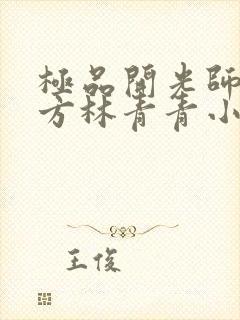 極品開光師
方林青青小
王俊